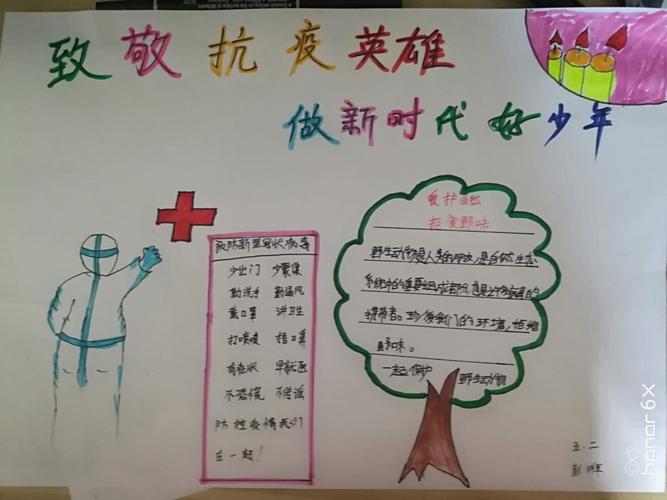 致敬抗疫英雄
做新时代好少年
预防新型冠状病毒
少出门 少聚集
勤洗手 勤通风
戴口罩 讲卫生
打喷嚏 捂口鼻
有症状 早就医
不恐慌 不传谣
防控疫情我们
在一起！
爱护自然
拒食野味
野生动物是人类的朋友，是自然生态
系统中的重要组成部分，也是
携带者。我们的环境，拒绝
野味。
一起保护 野生动物
五.二
honor 6x